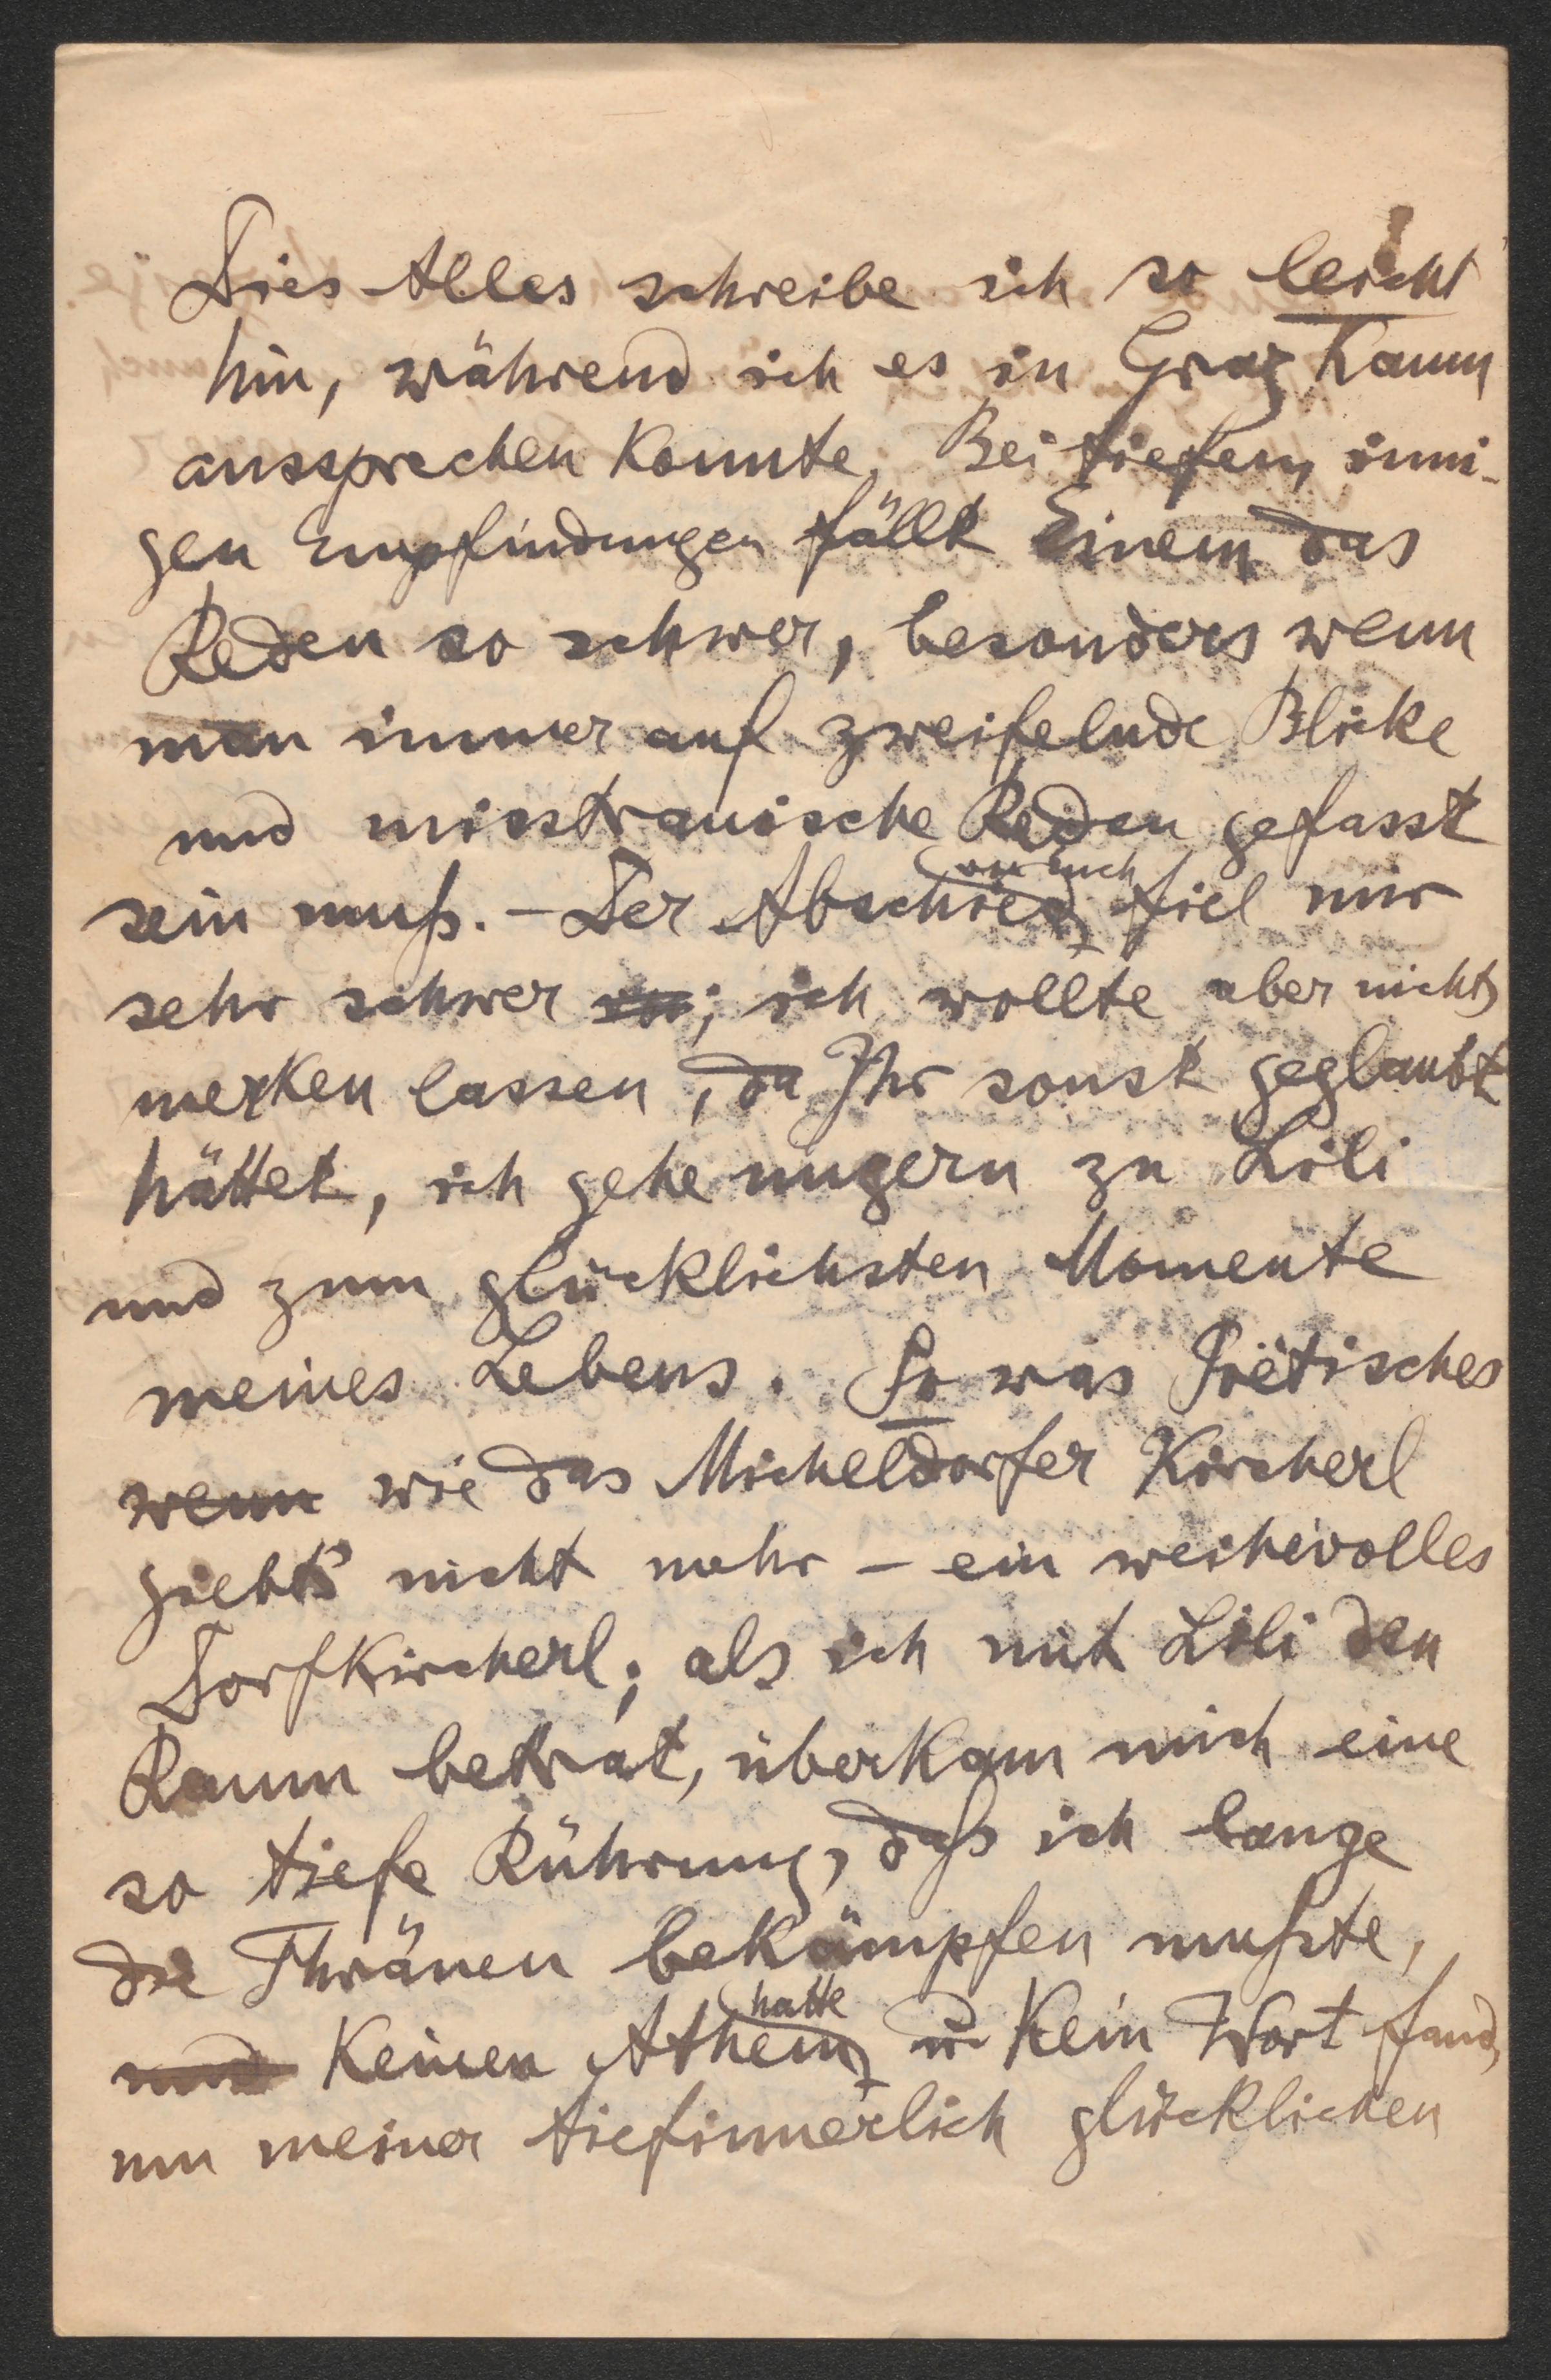 Dies Alles schreibe ich so leicht
hin, während ich es in Graz kaum
aussprechen konnte. Bei tiefen, inni-
gen Empfindungen fällt Einem das
Reden so schwer, besonders wenn
man immer auf zweifelnde Blicke
und misstrauische Reden gefasst
sein muß. – Der Abschied von Euch fiel mir
sehr schwer; ich wollte aber nichts
merken lassen, da Ihr sonst geglaubt
hättet, ich gehe ungern zu Lili
und zum glücklichsten Momente
meines Lebens. So was Poëtisches
wenn wie das Micheldorfer Kircherl
giebt's nicht mehr – ein weihevolles
Dorfkircherl; als ich mit Lili den
Raum betrat, überkam mich eine
so tiefe Rührung, daß ich lange
die Thränen bekämpfen mußte,
und keinen Athem hatte u kein Wort fand,
um meiner tiefinnerlich glücklichen